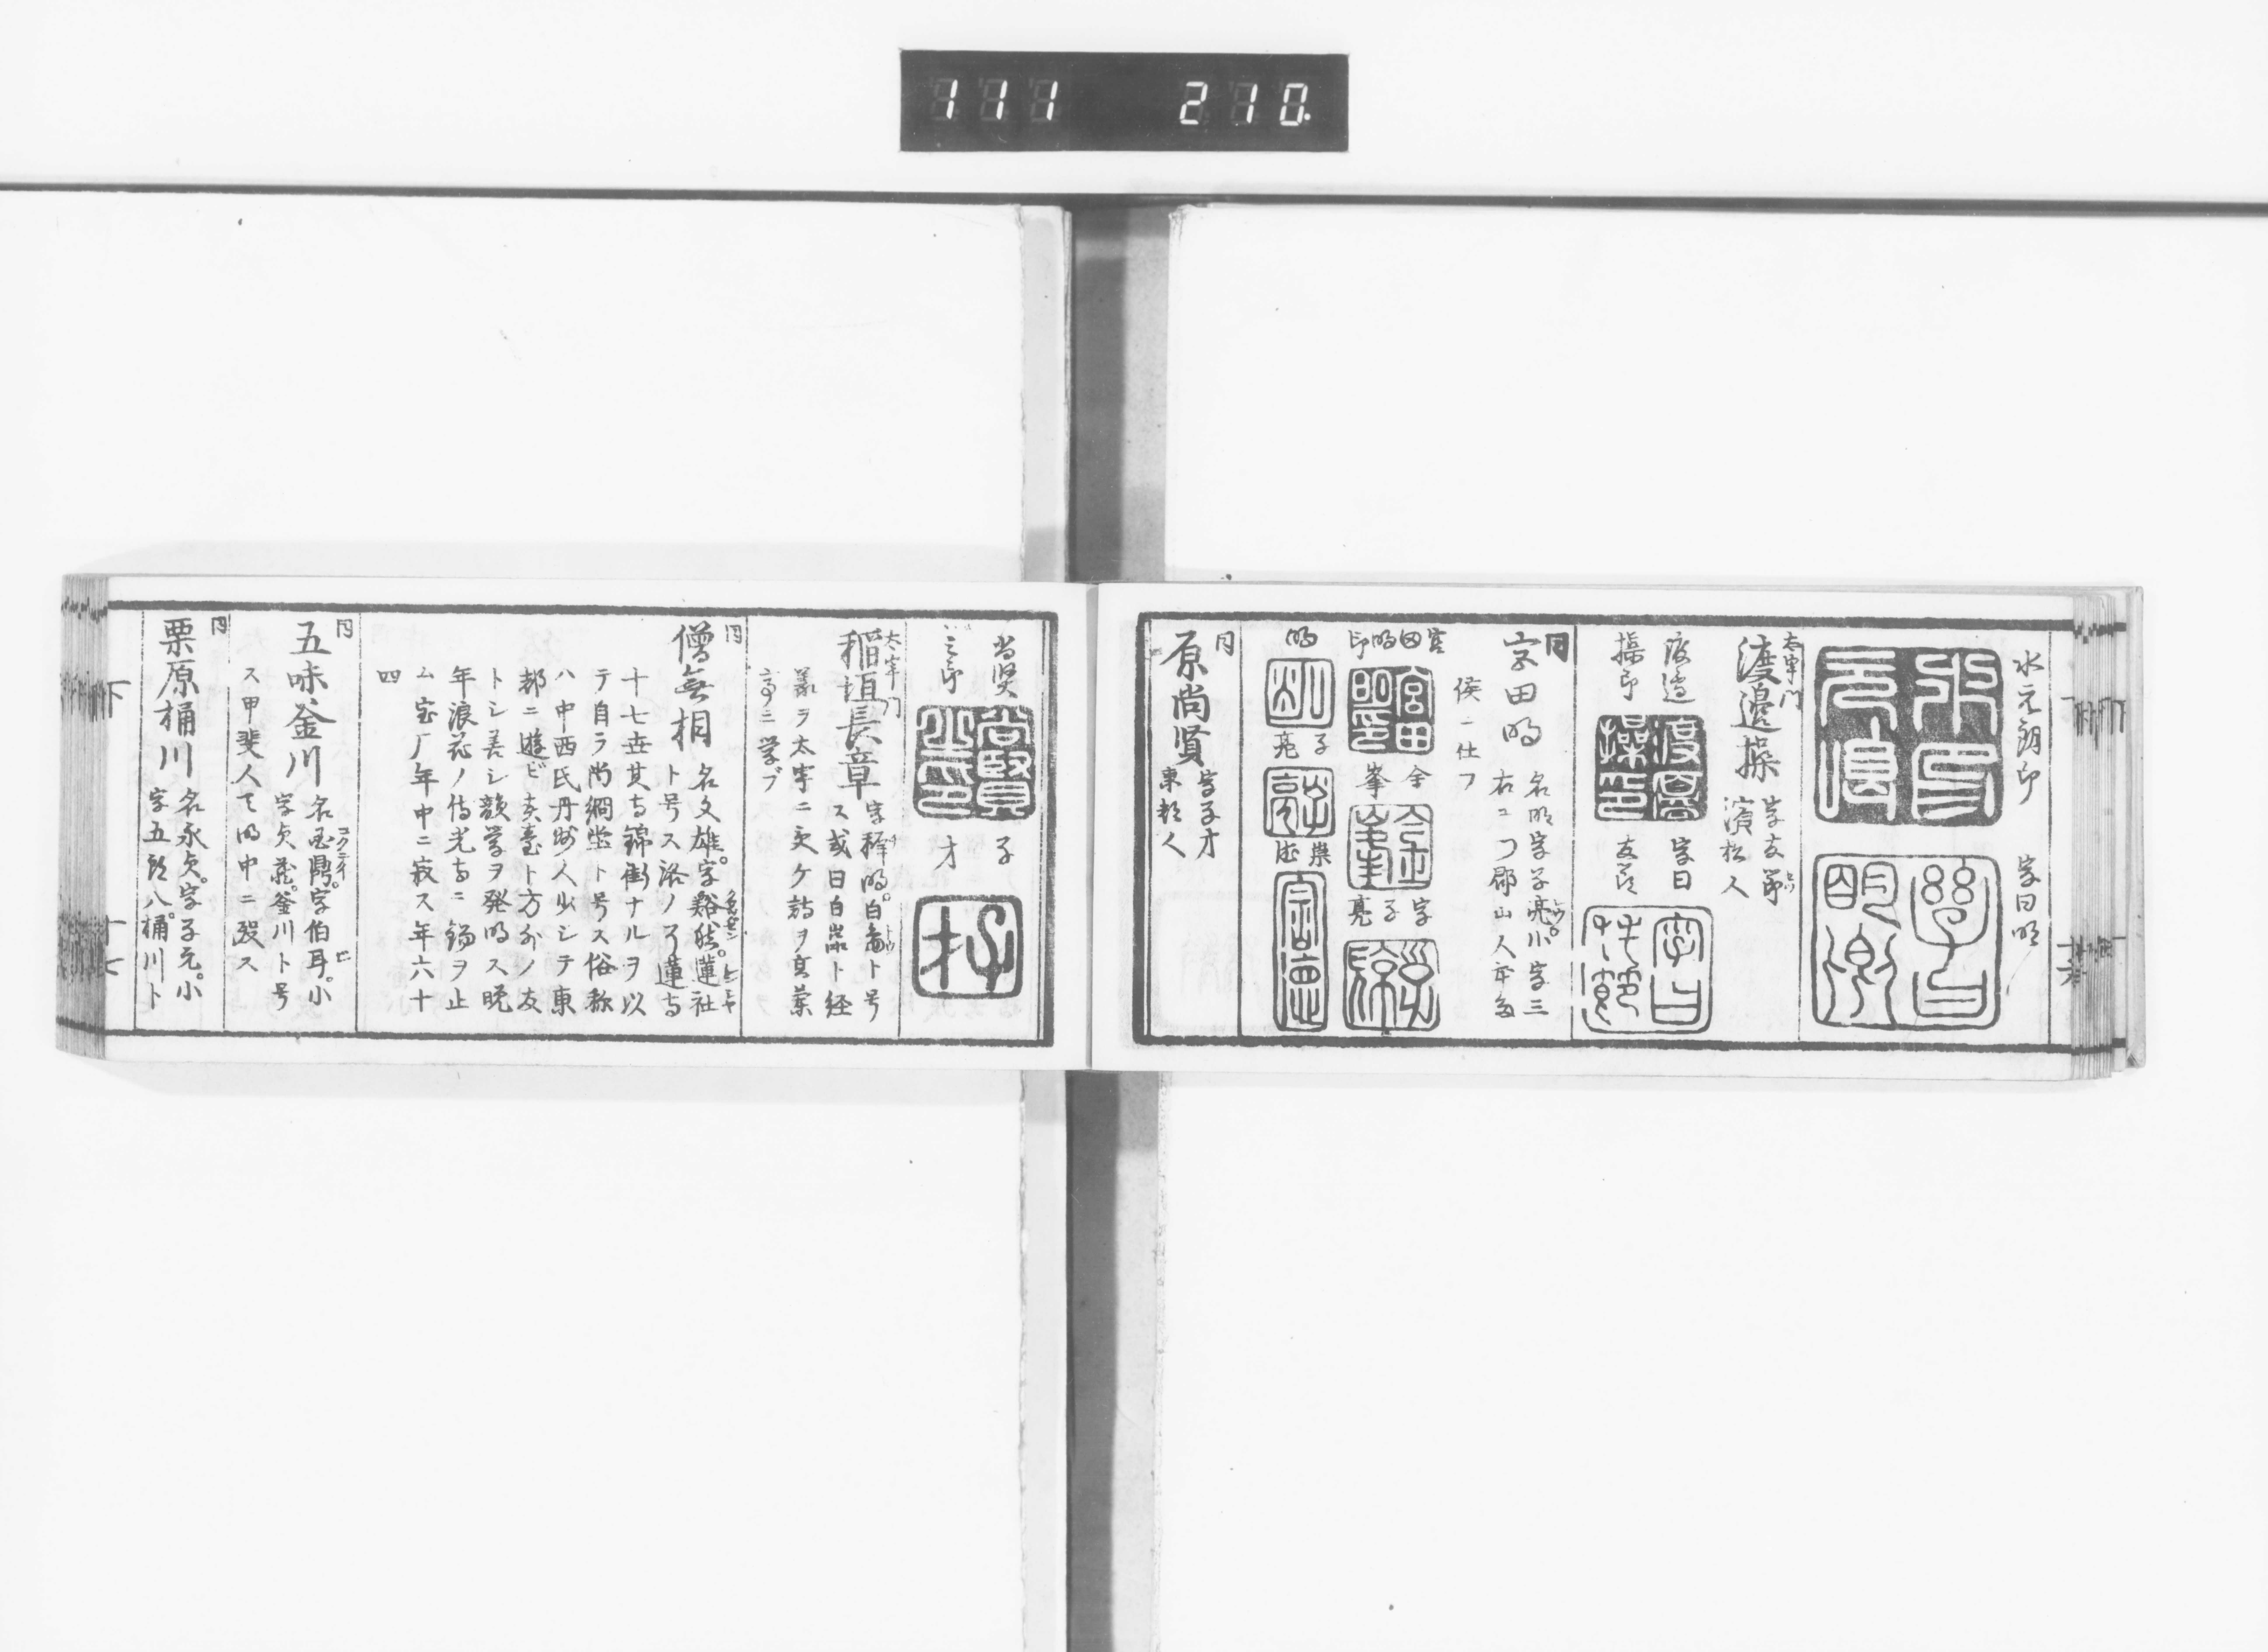 111 210.
水元朗印
字曰明
太宰門
渡邊操
字友節
濱松人
渡邉
操印
字曰
友節
同
宮田明
名明字子亮。小字三
右ヱ門郡山人本多
侯ニ仕フ
宮田
明印
金
峯
字
子亮
明
子
亮
崇
徳
同
原尚賢
字子才
東都人
尚賢
之印
子
才
太宰門
稲垣長章
字稚明。白嵓ト号
ス或曰白嵓ト経
義ヲ太宰ニ受ケ詩ヲ
ニ学ブ
同
僧無相
名文雄。字谿然。蓮社
ト号ス洛ノ了蓮寺
十七世其寺錦街ナルヲ以
テ自ラ尚絅堂ト号ス俗称
ハ中西氏丹州人少シテ東
都ニ遊ビ春臺ト方外ノ友
トシ善シ韻学ヲ発明ス晩
年浪花ノ傳光寺ニ錫ヲ止
ム宝厂年中ニ寂ス年六十
四
同
五味釜川
名国鼎。字伯耳。小
字貞蔵。釜川ト号
ス甲斐人天明中ニ歿ス
同
栗原桶川
名永貞。字子元。小
字五郎八。桶川ト
下
十七